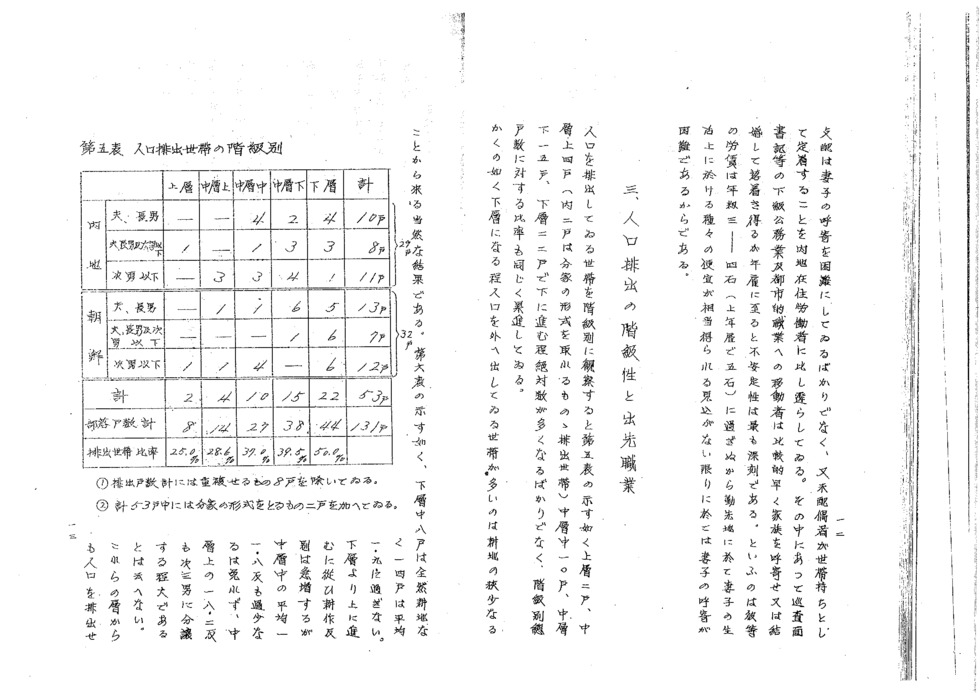 一二
支配は妻子の呼寄を困難にしてゐるばかりでなく、又未配偶者が世帯持ちとし
て定着することを内地在住労働者に比し遅らしてゐる。その中にあつて巡査面
書記等の下級公務業及都市的職業への移動者は比較的早く家族を呼寄せ又は結
婚して落着き得るが年雇に至ると不安定性は最も深刻である。といふのは彼等
の労賃は年級三——四石(上年雇で五石)に過ぎぬから勤先地に於て妻子の生
活上に於ける種々の便宜が相当得られる見込がない限りに於ては妻子の呼寄が
困難であるからである。
三、人口排出の階級性と出先職業
人口を排出してゐる世帯を階級別に観察すると第五表の示す如く上層二戸、中
層上四戸(内二戸は分家の形式を取れるもの、排出世帯)中層中一〇戸、中層
下一五戸、下層二二戸で下に進む程絶対数が多くなるばかりでなく、階級別総
戸数に対する比率も同じく累進してゐる。
かくの如く下層になる程人口を外へ出してゐる世帯が多いのは耕地の狭少なる
ことから来る当然な結果である。第六表の示す如く、下層中八戸は全然耕地な
第五表 人口排出世帯の階級別
上層 中層上 中層中 中層下 下層 計
内地
夫、長男 — — 4 2 4 10戸
夫長男及次男以下 1 — 1 3 3 8戸
次男以下 — 3 3 4 1 11戸
29戸
朝鮮
夫、長男 — 1 1 6 5 13戸
夫、長男及次男以下 — — — 1 6 7戸
次男以下 1 1 4 — 6 12戸
32戸
計 2 4 10 15 22 53戸
部落戸数計 8 14 27 38 44 131戸
排出世帯比率 25.0% 28.6% 37.0% 39.5% 50.0%
①排出戸数計には重複せるもの8戸を除いてゐる。
②計53戸中には分家の形式をとるもの二戸を加へてゐる。
く一四戸は平均
一・九反に過ぎない。
下層より上に進
むに従ひ耕作反
別は急増するが
中層中の平均一
一・八反も過少な
るは免れず、中
層上の一八・二反
も次三男に分譲
する程大である
とは云へない。
これらの層から
も人口を排出せ
一三